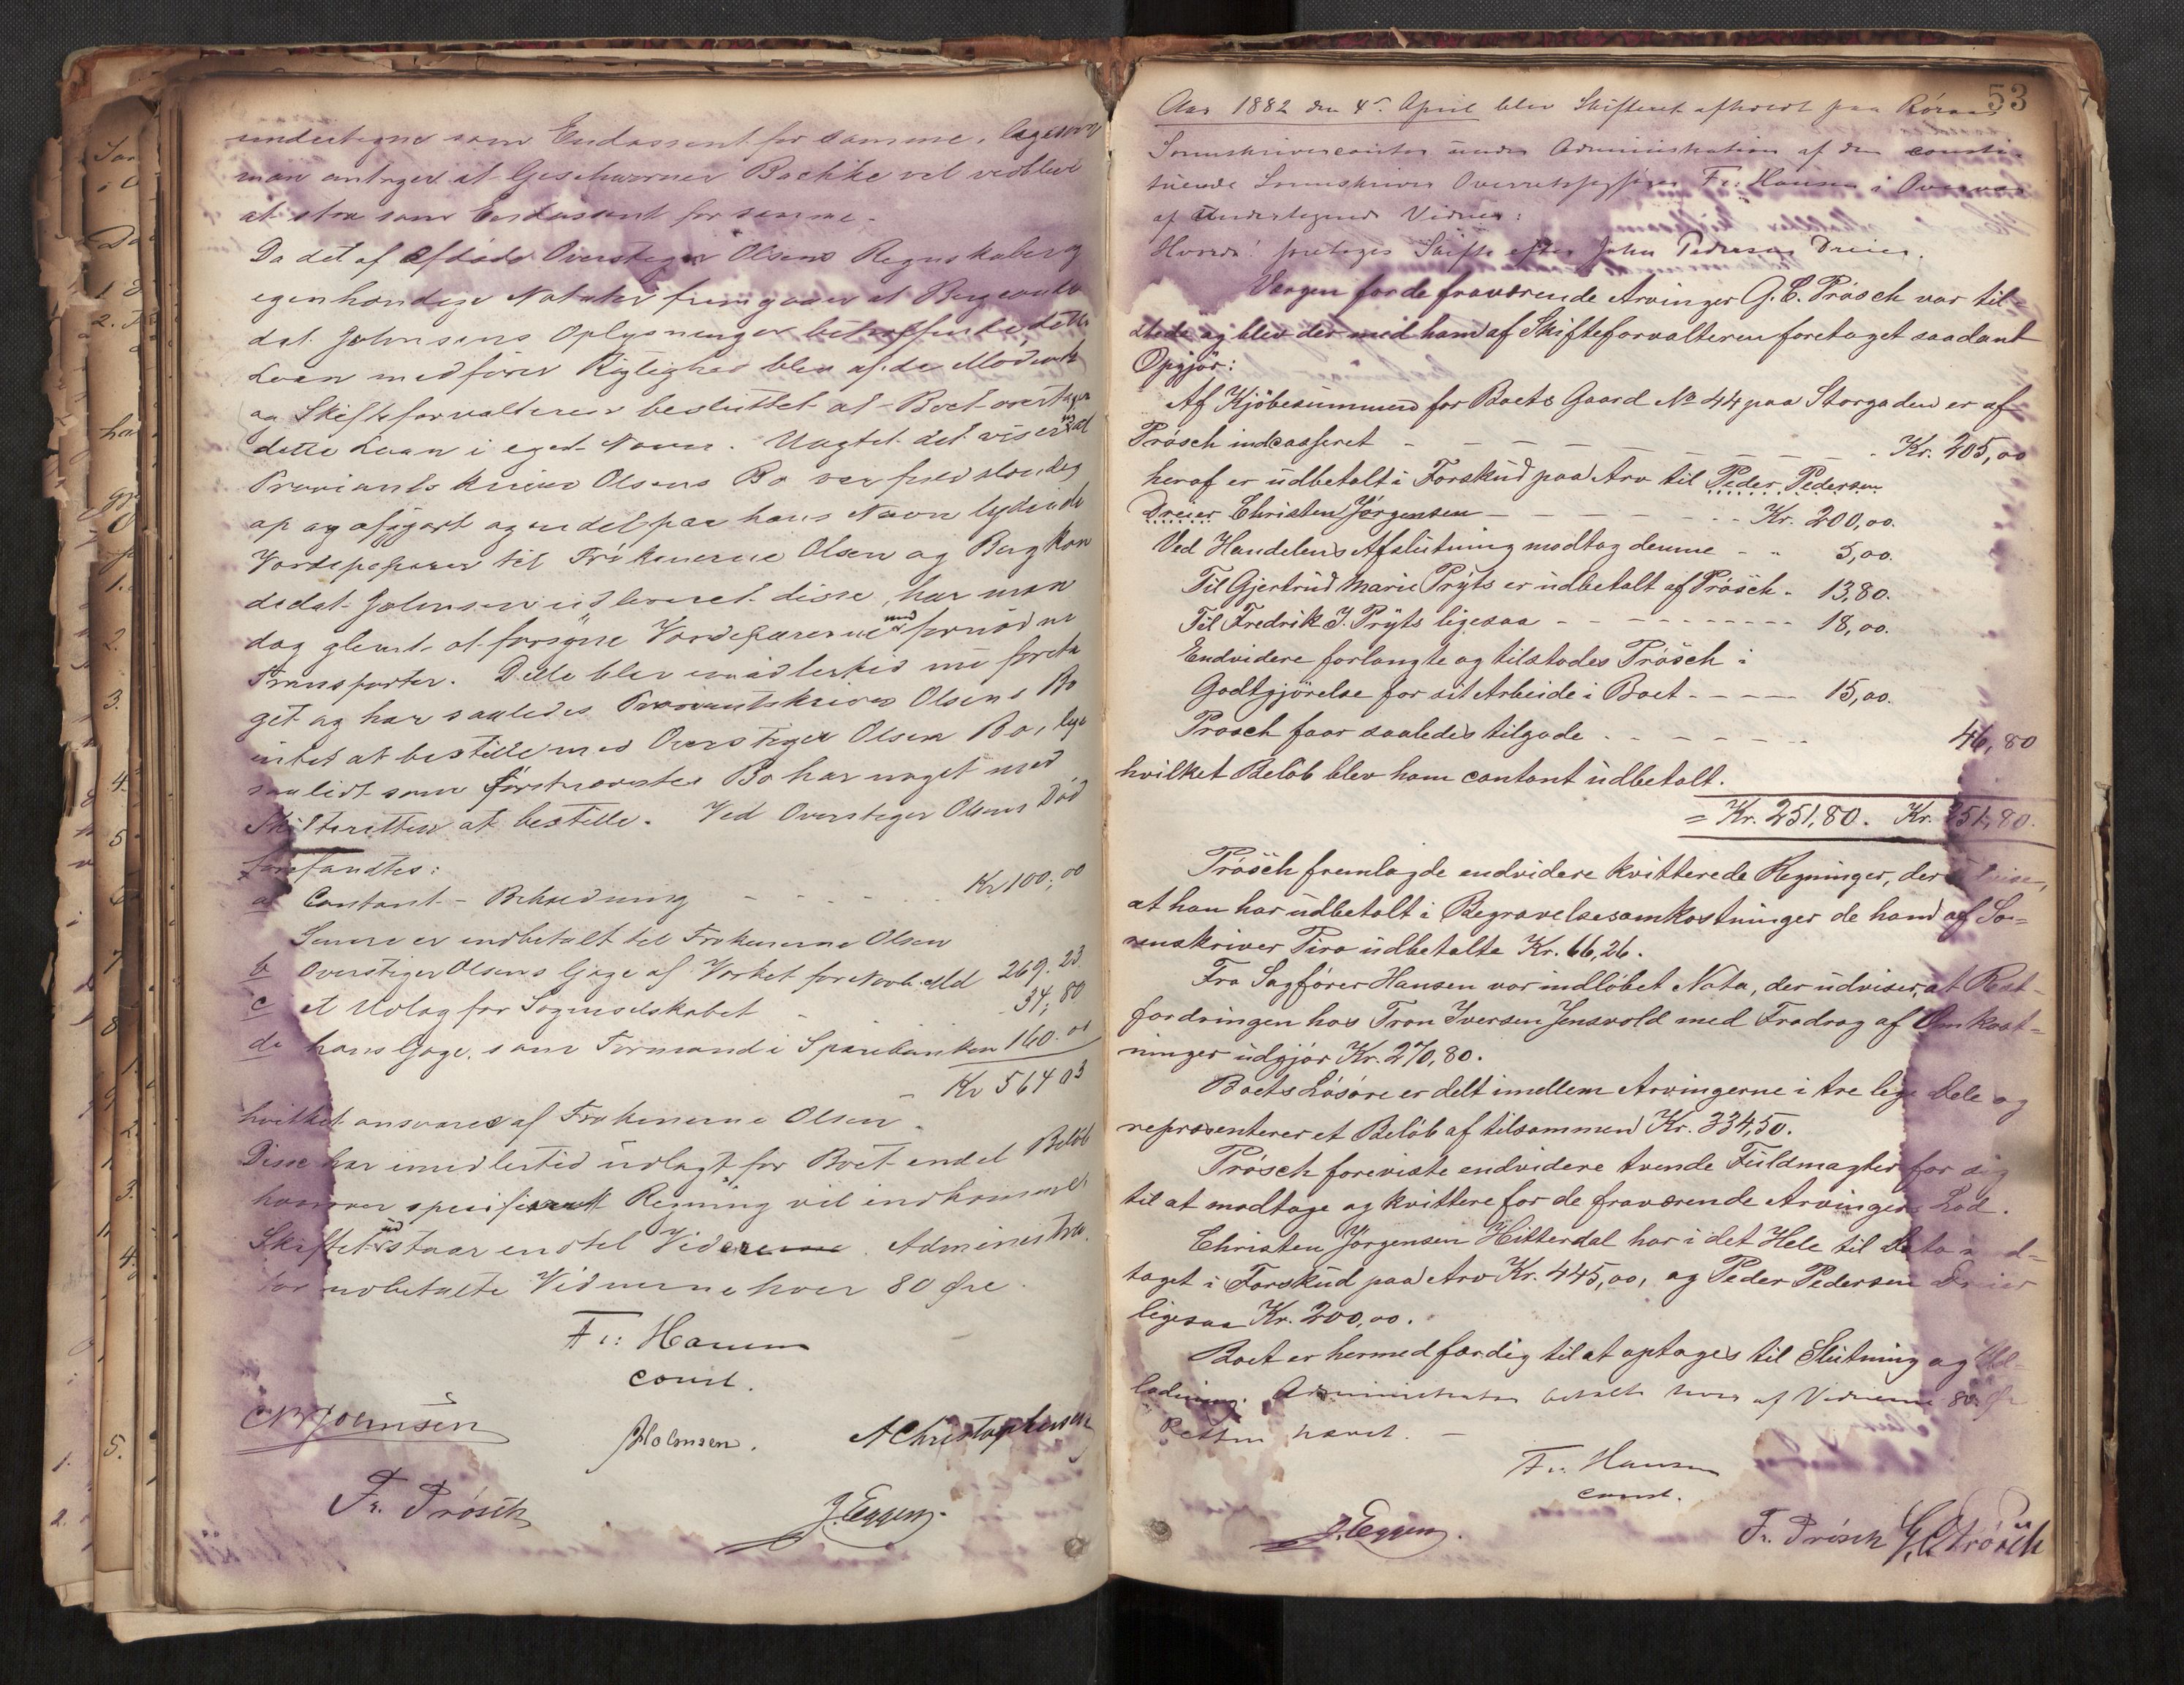 undertegne som Endossent for samme, ligesom
man antager at Geschworner Bachke vil vedblive
at staa som Endossent for samme.
Da det af afdøde Overstiger Olsens Regnskaber og
egenhændige Notater fremgaaer at Bergcand
dat Johnsens Oplysninger betræffende dette
Laan medfører Rigtighed blev af de Mødende
og Skifteforvalteren besluttet at Boet overtager
dette Laan i eget Navn. Uagtet det viser sig at
Proviantskriver Olsens Bo var fuldstændig
op og afgjort og en del paa hans Navn lydende
Værdipapirer til Frøkenerne Olsen og Bergkan
dedat Johnsen udleveret disse, har man
dog glemt at forsyne Værdipapirerne med fornødne
Transporter. Dette blev imidlertid nu foreta
get og har saaledes Proviantskriver Olsens Bo
intet at bestille med Overstiger Olsens Bo, lige
saalidt som førstnævntes Bo har noget med
Skifteretten at bestille. Ved Overstiger Olsens Død
forefandtes:
a Contant-Beholdning - - - - Kr 100,00
Senere er indbetalt til Frøkenerne Olsen
b Overstiger Olsens Gage af Værket for Novb. Md 269.23
c et Udlag for Sogneselskabet - 34,80
d hans Gage som Formand i Sparebanken 160.00
Kr 564 03
hvilket ansvares af Frøkenerne Olsen.
Disse har imidlertid udlagt for Boet endel Beløb
hvorover specificeret Regning vil indkomme.
Skiftet udstaar endel Videre. Administra
tor udbetalte Vidnerne hver 80 Øre
Fr: Hansen
const.
C B Johnsen
J Holmsen.
A Christophersen
Fr. Prøsch
J. Eggen.
53
Aar 1882 den 4de April blev Skifteret afholdt paa Røraas
Sorenskrivercontor under Administration af den consti-
tuerede Sorenskriver Overretssagfører Fr: Hansen i Overvær
af Undertegnede Vidner:
Hvorda! foretoges Skifte efter John Pedersen Dreier.
Værgen for de fraværende Arvinger G. C. Prösch var til-
stede og blev der med ham af Skifteforvalteren foretaget saadant
Opgjör:
Af Kjöbesummen for Boets Gaard No 44 paa Storgaden er af
Prösch indcasseret - - - - - - - - Kr. 205,00
heraf er udbetalt i Forskud paa Arv til Peder Pedersen
Dreier Christen Jörgensen - - - - - - - Kr. 200,00.
Ved Handelens Afslutning modtog denne - - 5,00.
Til Gjertrud Marie Pryts er udbetalt af Prösch - 13,80.
Til Fredrik J. Pryts ligesaa - - - - - - - - - 18,00.
Endvidere forlangte og tilstodes Prösch i
Godtgjörelse for sit Arbeide i Boet - - - - - 15,00.
Prösch faar saaledes tilgode - - - - - - - 46,80
hvilket Belöb blev ham contant udbetalt.
= Kr. 251,80. Kr. 251,80.
Prösch fremlagde endvidere kvitterede Regninger, der udvise,
at han har udbetalt i Begravelsesomkostninger de ham af So-
renskriver Piro udbetalte Kr. 66,26.
Fra Sagförer Hansen var indlöbet Nota, der udviser, at Rest-
fordringen hos Tron Iversen Jensvold med Fradrag af Omkost-
ninger udgjör Kr. 270,80.
Boets Lösöre er delt imellem Arvingerne i tre lige Dele og
repræsenterer et Belöb af tilsammen Kr. 334,50.
Prösch foreviste endvidere tvende Fuldmagter for sig
til at modtage og kvittere for de fraværende Arvingers Lod.
Christen Jörgensen Hitterdal har i det Hele til Dato mod-
taget i Forskud paa Arv Kr. 445,00, og Peder Pedersen Dreier
ligesaa Kr. 200,00.
Boet er hermed færdig til at optages til Slutning og Ud-
lodning. Administrator betalte hver af Vidnerne 80 Øre
Retten hævet. -
Fr: Hansen
const.
J. Eggen.
Fr. Prösch G. C. Prösch